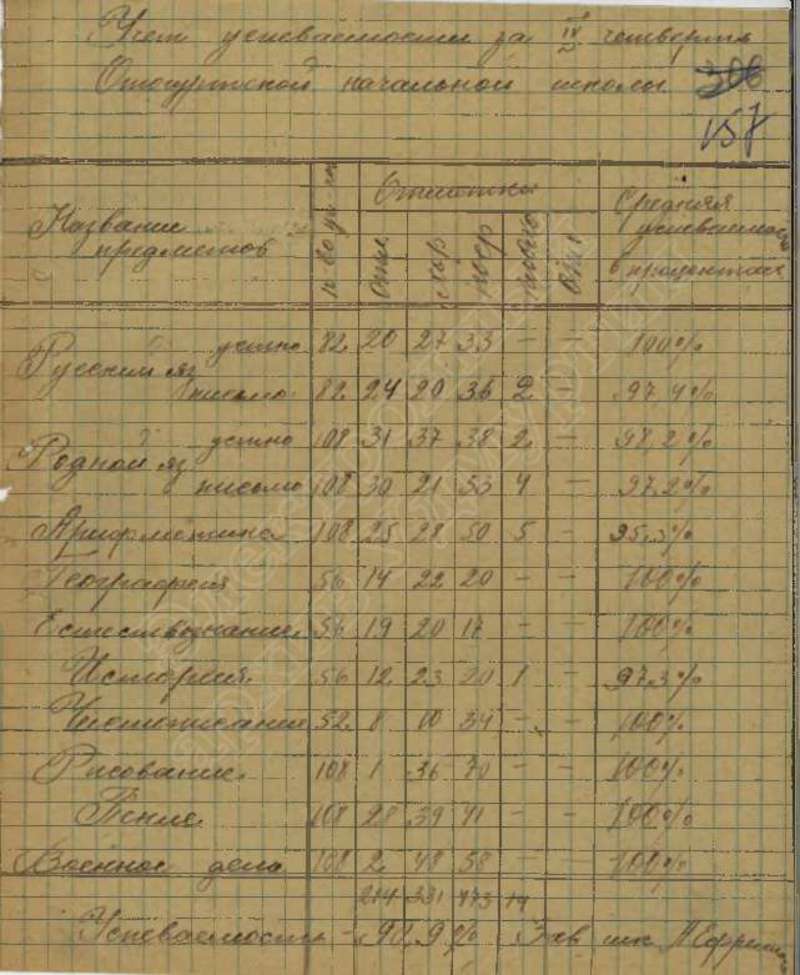 Учет успеваемости за IV четверть
начальной школы 306
157
Название предметов Отметки Средняя успеваемость в процентах
отл хор поср плохо
Русский яз устно 82 20 27 33 — — 100%
письмо 82 24 20 36 2 — 97,4%
Родной яз устно 108 31 37 38 2 — 98,2%
письмо 108 30 21 53 4 — 97,2%
Арифметика 108 25 28 50 5 — 95,3%
География 56 14 22 20 — — 100%
Естествознание 56 19 20 17 — — 100%
История 56 12 23 20 1 — 97,3%
Чистописание 52 8 10 34 — — 100%
Рисование 108 1 36 70 — — 100%
Пение 108 28 39 41 — — 100%
Военное дела 108 2 48 58 — — 100%
214 331 473 14
Успеваемость - 98,9% Зав шк